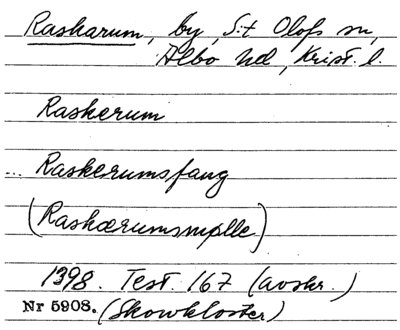 Raskarum, by, S:t Olofs sn,
Albo hd, Krist. l.
Raskerum
... Raskerumsfang
(Raskærumsmølle)
1398. Test. 167 (avskr.)
Nr 5908. (Skowkloster)